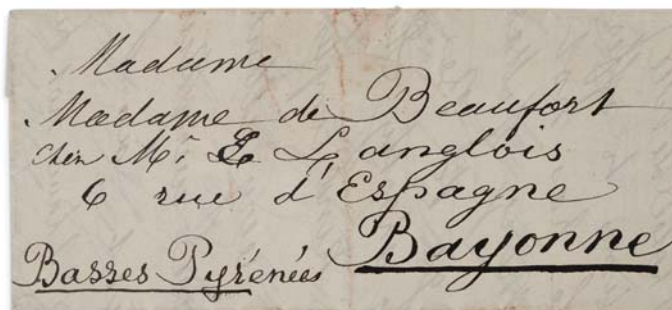 Madame
Madame de Beaufort
chez Mr E Langlois
6 rue d'Espagne
Bayonne
Basses Pyrénées